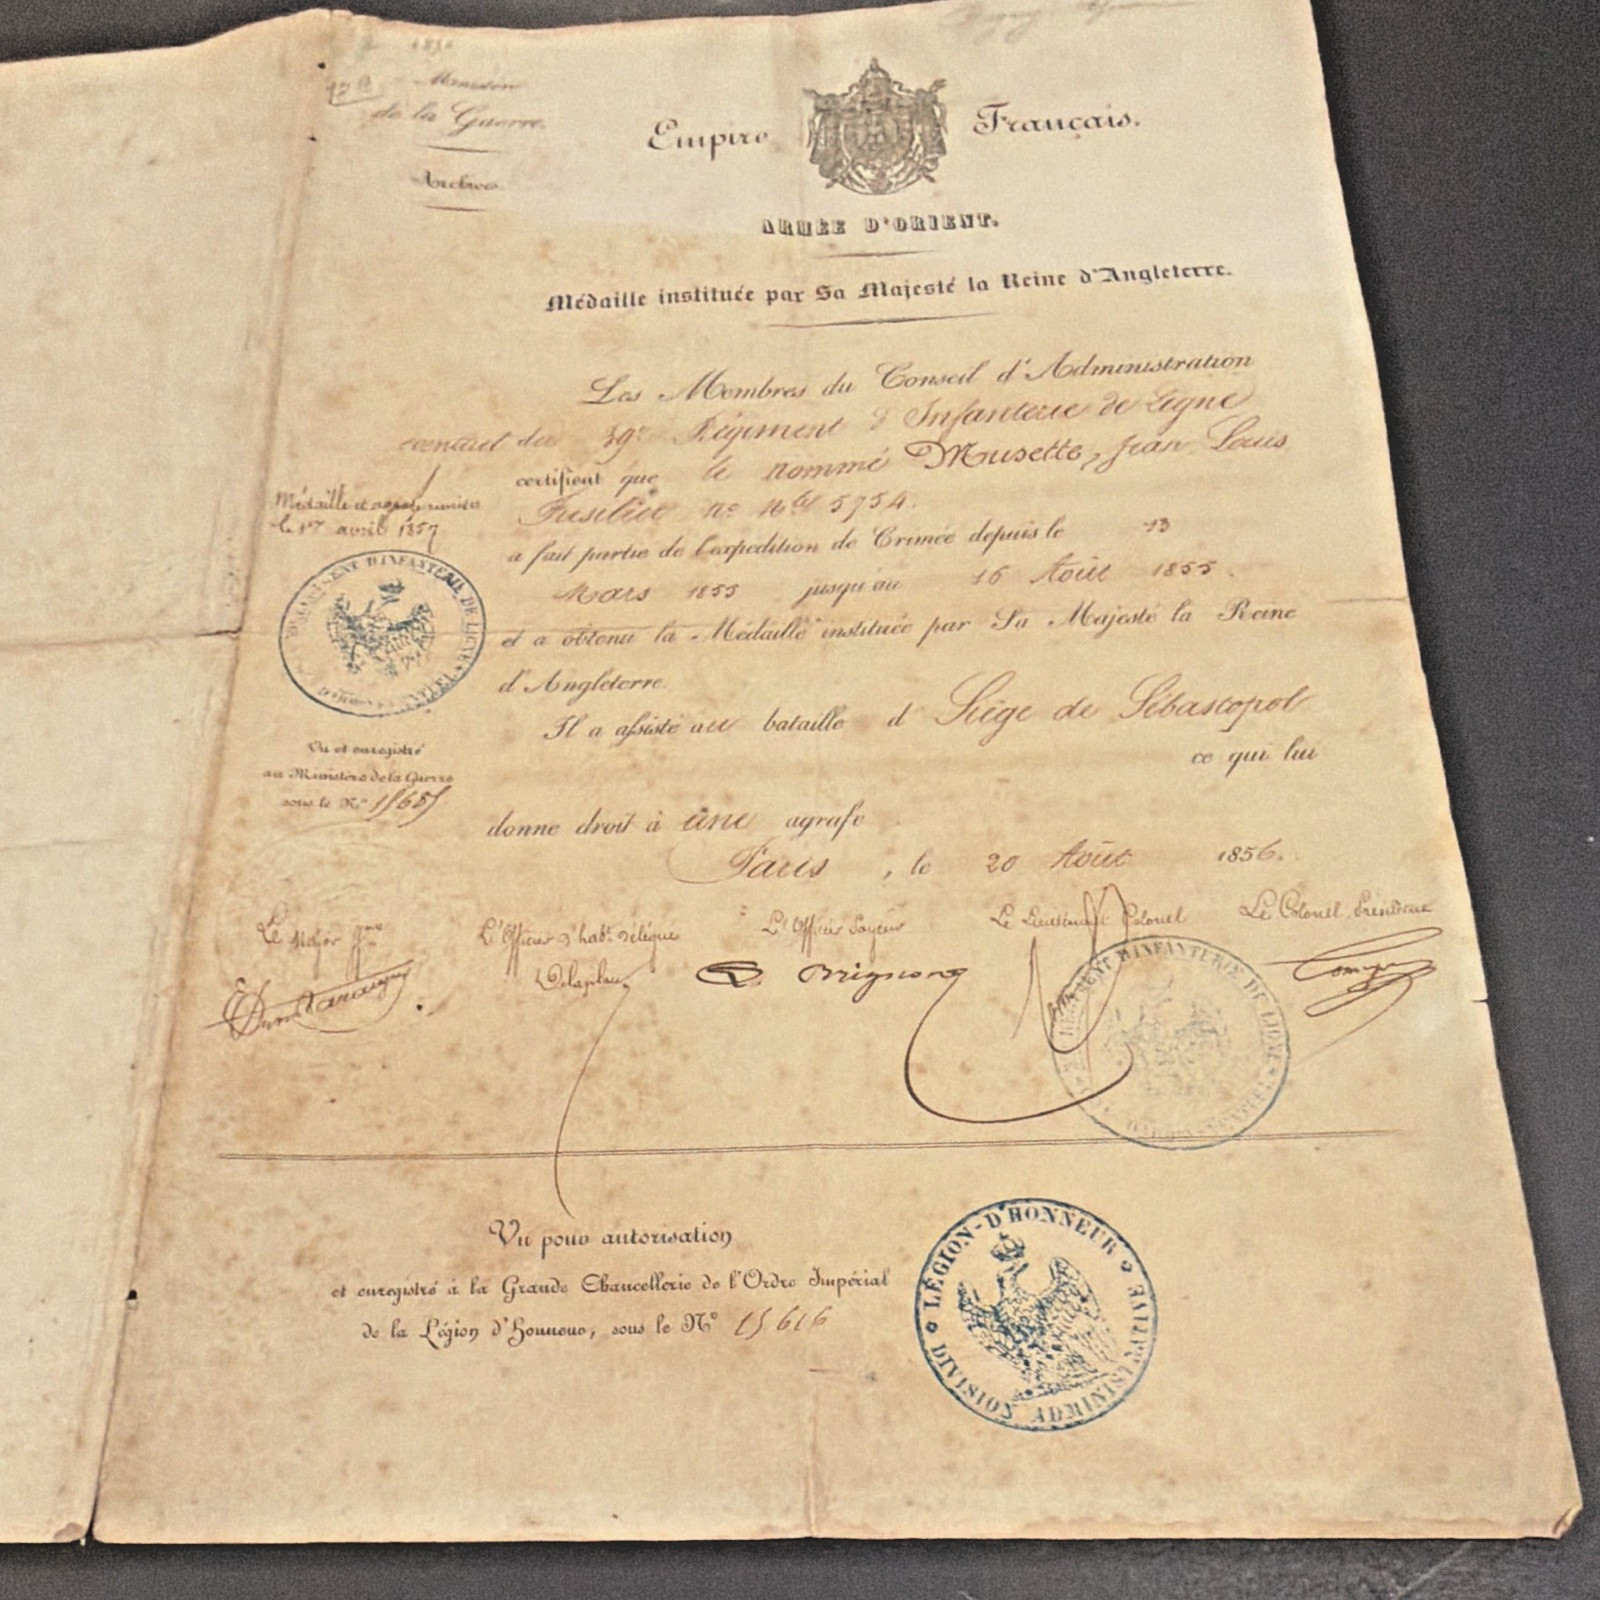 de la Guerre.
Archives.
Empire Français.
ARMÉE D'ORIENT.
Médaille instituée par Sa Majesté la Reine d'Angleterre.
Les Membres du Conseil d'Administration
du 39e Régiment d'Infanterie de Ligne
certifient que le nommé Musette, Jean Louis
Fusilier no Mle 5754.
a fait partie de l'expédition de Crimée depuis le 13
Mars 1855 jusqu'au 16 Août 1855.
et a obtenu la Médaille instituée par Sa Majesté la Reine
d'Angleterre.
Il a assisté au bataille d Siège de Sébastopol
ce qui lui
donne droit à une agrafe
Paris, le 20 Août 1856.
Médaille et agrafe remises
le 1er avril 1857
RÉGIMENT D'INFANTERIE DE LIGNE
Vu et enregistré
au Ministère de la Guerre
sous le No
Le Major
L'Officier d'habt délégué
L'Officier Payeur
Le Lieutenant Colonel
Le Colonel, Président
Brignone
RÉGIMENT D'INFANTERIE DE LIGNE
Vu pour autorisation
et enregistré à la Grande Chancellerie de l'Ordre Impérial
de la Légion d'Honneur, sous le No 15616
LÉGION-D'HONNEUR
DIVISION ADMINISTRATIVE